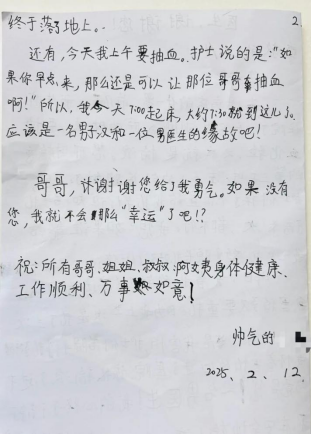 2
终于落了地上。
还有，今天我上午要抽血。护士说的是："如
果你早点来，那么还是可以让那位哥哥抽血
啊！"所以，我今天7:00起床，大约7:30就到这儿了。
应该是一名男子汉和一位男医生的缘故吧！
哥哥，谢谢您给了我勇气。如果没有
您，我就不会那么"幸运"了吧！？
祝：所有哥哥、姐姐、叔叔、阿姨身体健康、
工作顺利、万事如意！
帅气的
2025、2、12